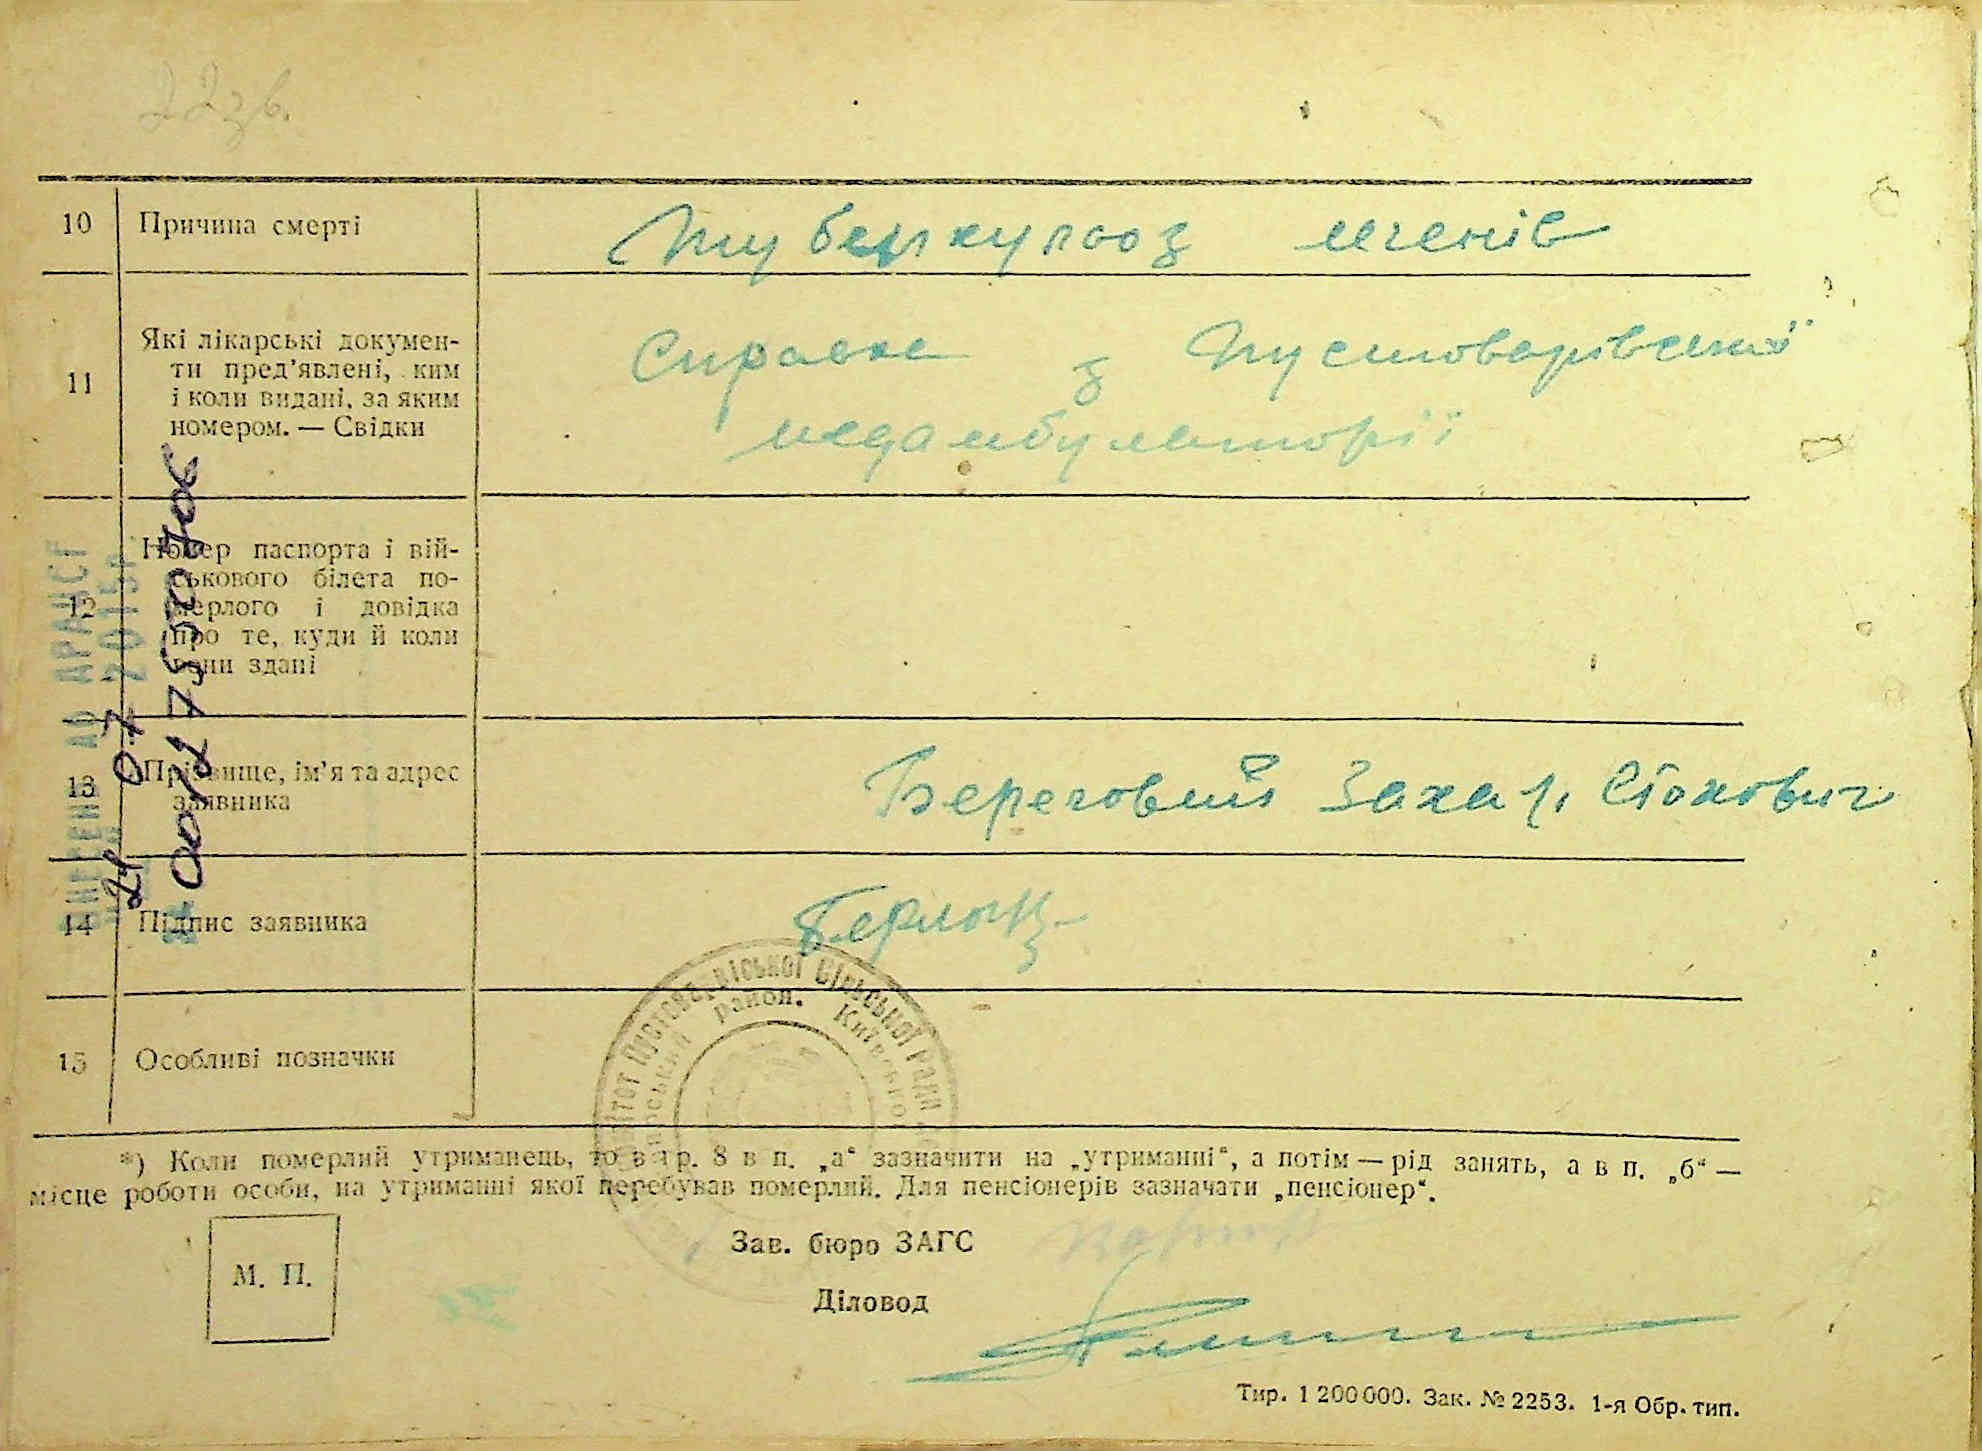 22 зв.
10 Причина смерті Туберкульоз легенів
11 Які лікарські докумен-
ти пред'явлені, ким
і коли видані, за яким
номером. — Свідки
Справка з Пустоварівської
медамбулаторії
12 Номер паспорта і вій-
ськового білета по-
мерлого і довідка
про те, куди й коли
вони здані
13 Прізвище, ім'я та адрес
заявника
Береговий Захар
14 Підпис заявника
15 Особливі позначки
Пустоварівської Сільської Ради
район. Київської
*) Коли померлий утриманець, то в гр. 8 в п. „а“ зазначити на „утриманні“, а потім — рід занять, а в п. „б“ —
місце роботи особи, на утриманні якої перебував померлий. Для пенсіонерів зазначати „пенсіонер“.
М. П.
Зав. бюро ЗАГС
Діловод
Тир. 1 200 000. Зак. № 2253. 1-я Обр. тип.
ВНЕСЕНО ДО ДРАЦСГ
24 07 2015р
№ 00127550706